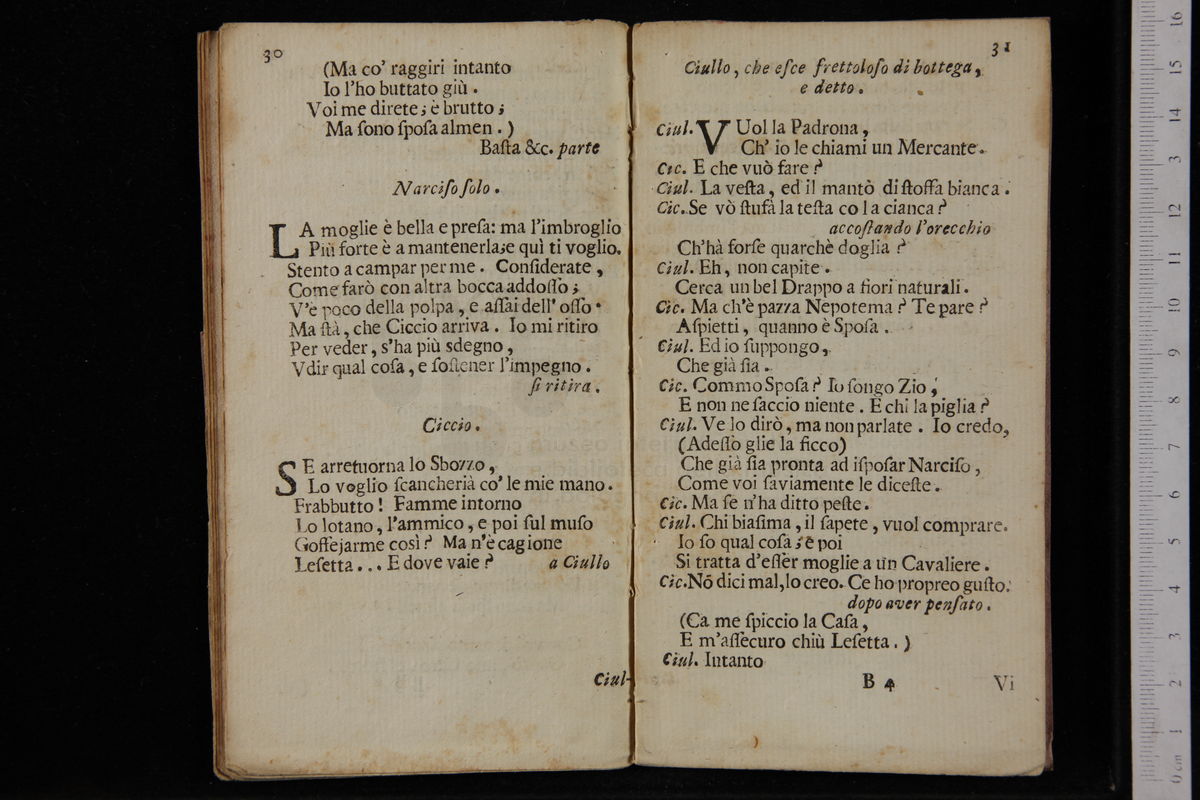 30
(Ma co' raggiri intanto
Io l'ho buttato giù.
Voi me direte; è brutto;
Ma ſono ſpoſa almen.)
Baſta &c. parte
Narciſo ſolo.
LA moglie è bella e preſa: ma l'imbroglio
Più forte è a mantenerla;e quì ti voglio.
Stento a campar per me. Conſiderate,
Come farò con altra bocca addoſſo;
V'è poco della polpa, e aſſai dell' oſſo.
Ma ſtà, che Ciccio arriva. Io mi ritiro
Per veder, s'ha più sdegno,
Vdir qual coſa, e ſoſtener l'impegno.
ſi ritira.
Ciccio.
SE arretuorna lo Sbozzo,
Lo voglio ſcancherià co' le mie mano.
Frabbutto! Famme intorno
Lo lotano, l'ammico, e poi ſul muſo
Goffejarme così? Ma n'è cagione
Leſetta... E dove vaie? a Ciullo
Ciul-
31
Ciullo, che eſce frettoloſo di bottega,
e detto.
Ciul. VUol la Padrona,
Ch' io le chiami un Mercante.
Cic. E che vuò fare?
Ciul. La veſta, ed il mantò di ſtoffa bianca.
Cic. Se vò ſtufà la teſta co la cianca?
accoſtando l'orecchio
Ch'hà forſe quarchè doglia?
Ciul. Eh, non capite.
Cerca un bel Drappo a fiori naturali.
Cic. Ma ch'è pazza Nepotema? Te pare?
Aſpietti, quanno è Spoſa.
Ciul. Ed io ſuppongo,
Che già ſia.
Cic. Commo Spoſa? Io ſongo Zio,
E non ne ſaccio niente. E chi la piglia?
Ciul. Ve lo dirò, ma non parlate. Io credo,
(Adeſſo glie la ficco)
Che già ſia pronta ad iſpoſar Narciſo,
Come voi ſaviamente le diceſte.
Cic. Ma ſe n'ha ditto peſte.
Ciul. Chi biaſima, il ſapete, vuol comprare.
Io ſo qual coſa; e poi
Si tratta d'eſſer moglie a un Cavaliere.
Cic. Nõ dici mal, lo creo. Ce ho propreo guſto.
dopo aver penſato.
(Ca me ſpiccio la Caſa,
E m'aſſecuro chiù Leſetta.)
Ciul. Intanto
B 4 Vi